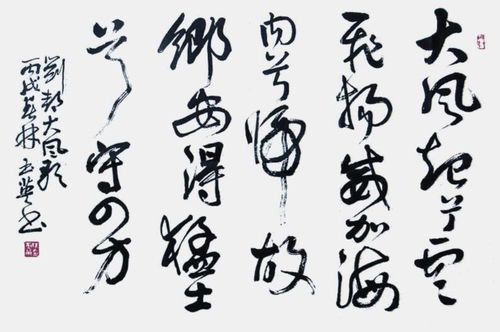 大風起兮雲
飛揚威加海
内兮歸故
鄉安得猛士
兮守四方
劉邦大風歌
丙戌